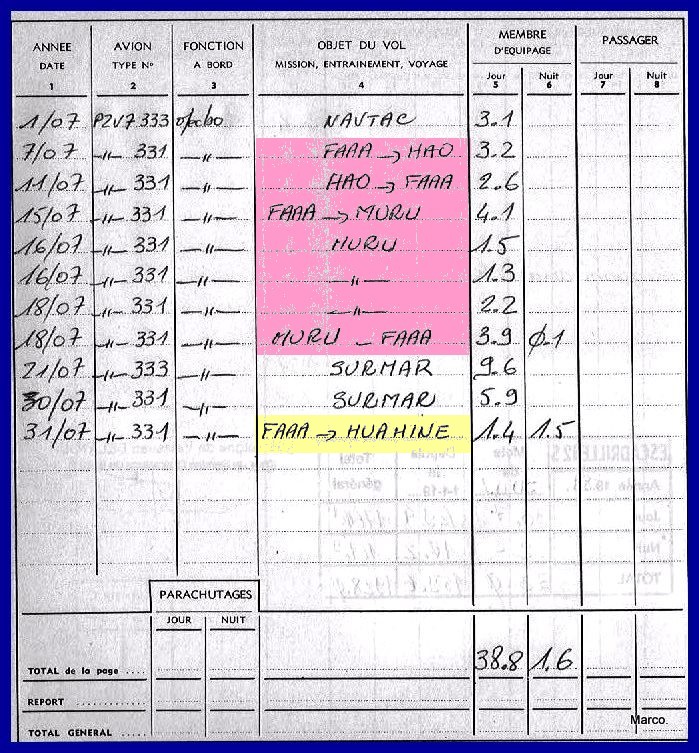 ANNEE AVION FONCTION OBJET DU VOL MEMBRE D'EQUIPAGE PASSAGER
DATE TYPE N° A BORD MISSION, ENTRAINEMENT, VOYAGE Jour Nuit Jour Nuit
1 2 3 4 5 6 7 8
1/07 P2V7 333 NAVTAC 3.1
7/07 -"- 331 -"- FAAA → HAO 3.2
11/07 -"- 331 -"- HAO → FAAA 2.6
15/07 -"- 331 -"- FAAA → MURU 4.1
16/07 -"- 331 -"- MURU 1.5
16/07 -"- 331 -"- -"- 1.3
18/07 -"- 331 -"- -"- 2.2
18/07 -"- 331 -"- MURU - FAAA 3.9 0.1
21/07 -"- 333 -"- SURMAR 9.6
30/07 -"- 331 -"- SURMAR 5.9
31/07 -"- 331 -"- FAAA → HUAHINE 1.4 1.5
PARACHUTAGES
JOUR NUIT
TOTAL de la page .... 38.8 1.6
REPORT ..............
Marco.
TOTAL GENERAL .....